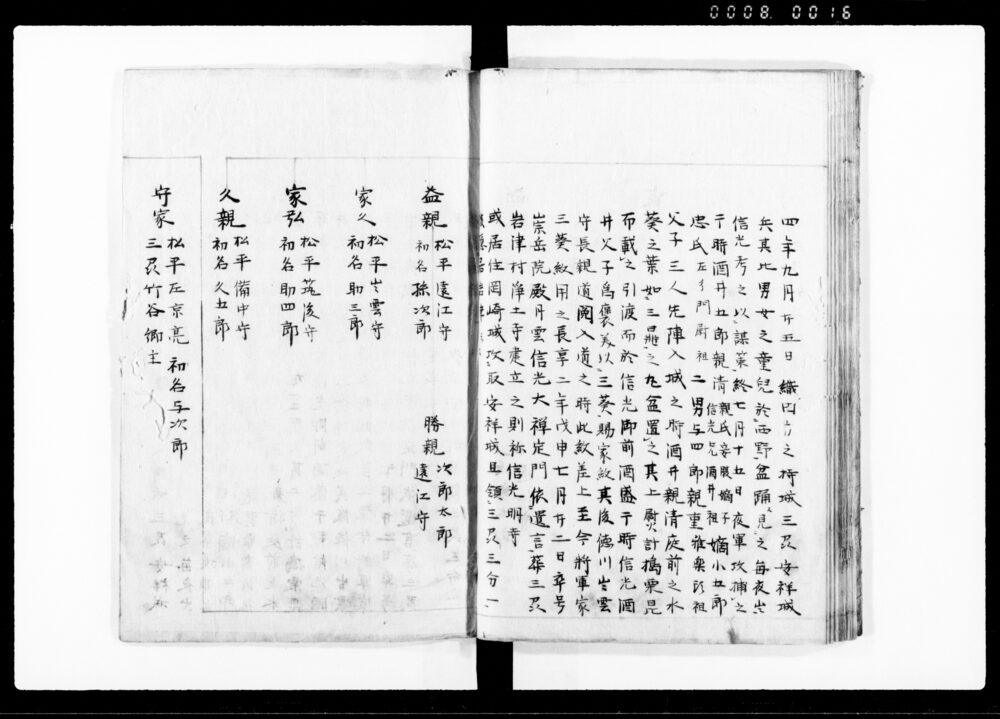 0008 0016
四年九月廿五日 織田方之持城三州安祥城
兵其比男女之童兒於西野盆踊見之毎夜出
信光考之以謀策終七月十五日夜軍攻捕之
于時酒井五郎親清 親氏妾腹嫡子 信光兄酒井祖 嫡小五郎
忠氏左ヱ門尉祖 二男与四郎親重雅楽頭祖
父子三人先陣入城之時酒井親清庭前之水
葵之葉如三鼎之九盆置之其上熨計搗栗昆
布載之引渡而於信光御前酒盛于時信光酒
井父子為褒美以三葵賜家紋其後徳川出雲
守長親道閲入道之時此紋差上至今将軍家
三葵紋用之長享二年戊申七月廿二日卒号
崇岳院殿月雲信光大禅定門依遺言葬三州
岩津村浄土寺建立之則称信光明寺
或居住岡崎城攻取安祥城且領三州三分一
益親 松平遠江守 初名孫次郎
勝親 次郎太郎 遠江守
家久 松平出雲守 初名助三郎
家弘 松平筑後守 初名助四郎
久親 松平備中守 初名久五郎
守家 松平左京亮 初名与次郎 三州竹谷郷主